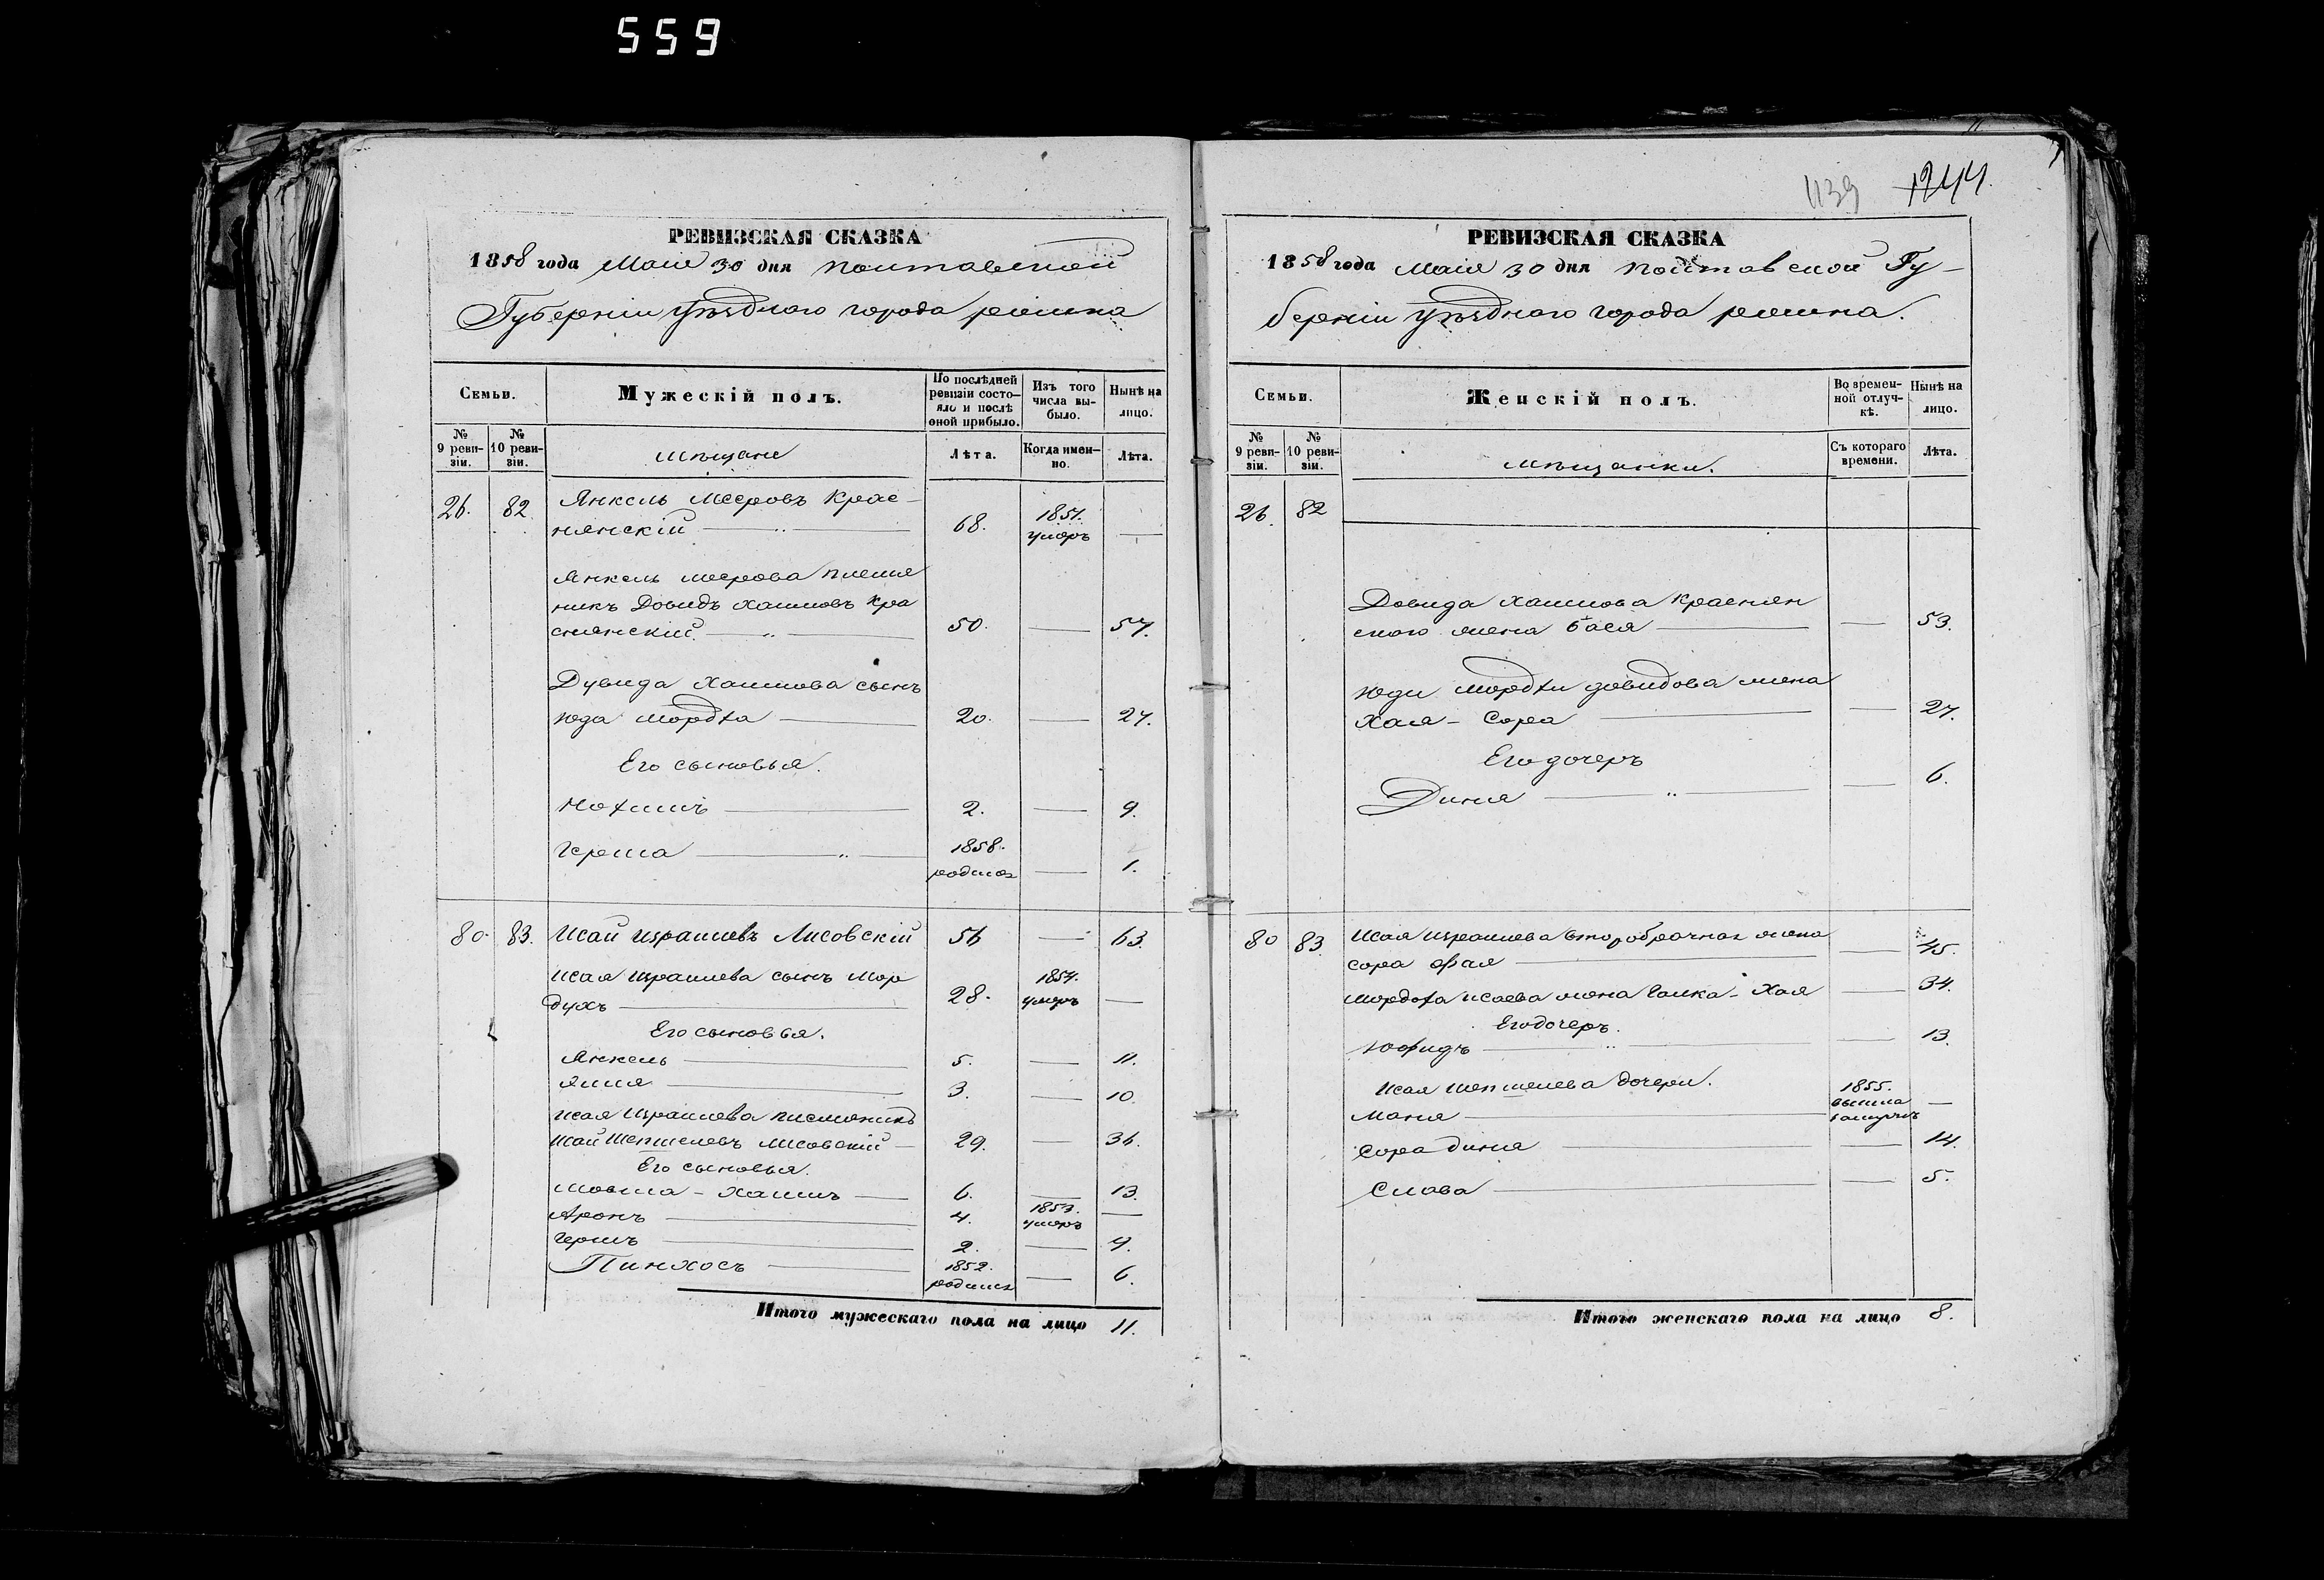 559
РЕВИЗСКАЯ СКАЗКА
1858 года Маія 30 дня Полтавской
Губерніи уѣзднаго города ромна
Семьи.
Мужескій полъ.
По послѣдней ревизіи состояло и послѣ оной прибыло.
Изъ того числа выбыло.
Нынѣ на лицо.
№ 9 ревизіи.
№ 10 ревизіи.
мѣщане
Лѣта.
Когда именно.
Лѣта.
26. 82. Янкель Мееровъ Крас-
нянскій 68. 1851. умеръ —
Янкель меерова племя
никъ Довидъ хаимовъ кра
снянскій. 50. — 57.
Дувида Хаимова сынъ
Юда Мордха 20. — 27.
Его сыновья.
Нохимъ 2. — 9.
Герша 1858. родился — 1.
80. 83. Исай Израилевъ Лисовскій 56 — 63.
Исая Израилева сынъ Мор
духъ 28. 1854. умеръ —
Его сыновья.
Янкель 5. — 11.
3. — 10.
Исая Израилева племяникъ
Исай Шепшелевъ лисовскій 29. — 36.
Его сыновья.
Мовша - Хаимъ 6. — 13.
Аронъ 4. 1853. умеръ —
Гершъ 2. — 9.
Пинхосъ 1852. родился — 6.
Итого мужескаго пола на лицо 11.
1139 1244.
РЕВИЗСКАЯ СКАЗКА
1858 года Маія 30 дня Полтавской Гу-
берніи уѣзднаго города ромна.
Семьи.
Женскій полъ.
Во временной отлучкѣ.
Нынѣ на лицо.
№ 9 ревизіи.
№ 10 ревизіи.
мѣщанки.
Съ котораго времени.
Лѣта.
26. 82
Довида хаимова краснян
ского жена бася — 53.
Юди мордхи довидова жена
Хая - Сора — 27.
Его дочеръ
Диня — 6.
80 83. Исая Израилева второбрачная жена
сора фая — 45.
Мордоха исаева жена Галка - Хая — 34.
Его дочеръ.
Юфидъ — 13.
Исая Шепшелева дочери.
Маня 1855. вышла замужъ —
Сора диня — 14.
Слава — 5.
Итого женскаго пола на лицо 8.